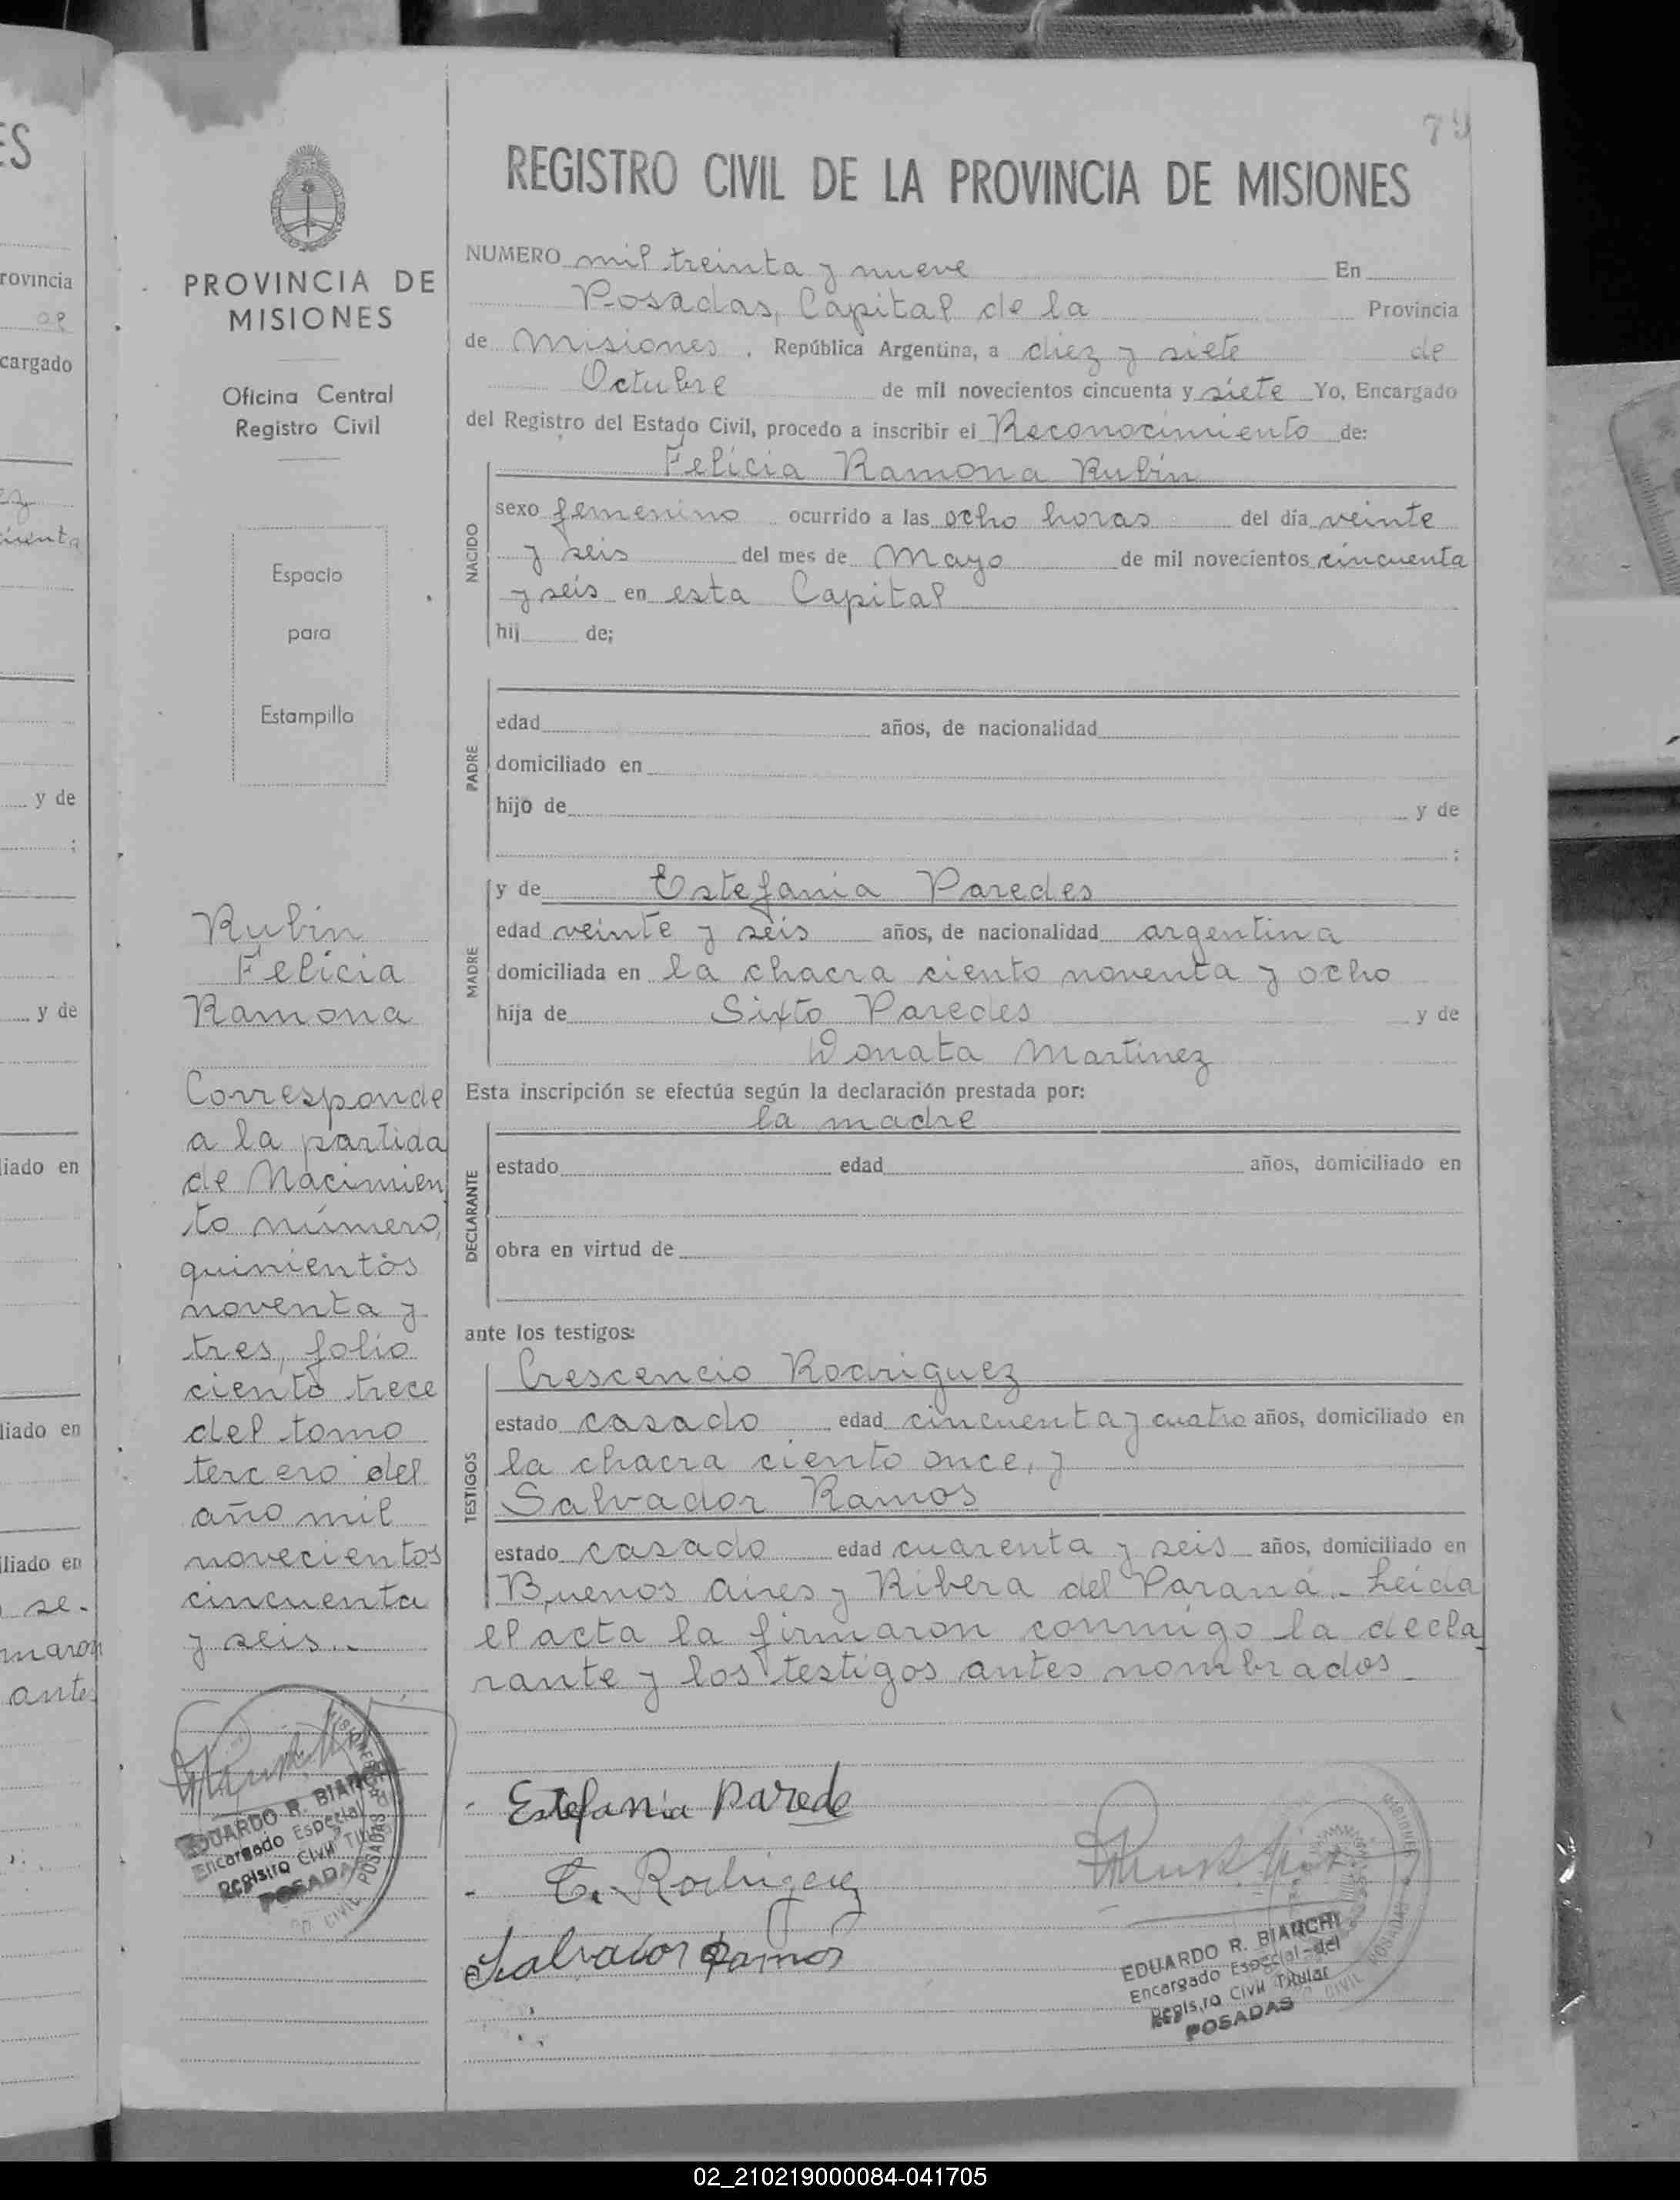 ES
rovincia
cargado
y de
;
y de
liado en
liado en
iliado en
se.
maron
ante
PROVINCIA DE
MISIONES
Oficina Central
Registro Civil
Espacio
para
Estampilla
Rubin
Felicia
Ramona
Corresponde
a la partida
de Nacimien
to número,
quinientos
noventa y
tres, folio
ciento trece
del tomo
tercero del
año mil
novecientos
cincuenta
y seis..
EDUARDO R. BIANCHI
Encargado Especial
Registro Civil Titular
POSADAS
79
REGISTRO CIVIL DE LA PROVINCIA DE MISIONES
NUMERO mil treinta y nueve En
Posadas, Capital de la Provincia
de Misiones . República Argentina, a diez y siete de
Octubre de mil novecientos cincuenta y siete Yo, Encargado
del Registro del Estado Civil, procedo a inscribir el Reconocimiento de:
Felicia Ramona Rubin
NACIDO
sexo femenino ocurrido a las ocho horas del día veinte
y seis del mes de Mayo de mil novecientos cincuenta
y seis en esta Capital
hij de;
PADRE
edad años, de nacionalidad
domiciliado en
hijo de y de
;
MADRE
y de Estefania Paredes
edad veinte y seis años, de nacionalidad argentina
domiciliada en la chacra ciento noventa y ocho
hija de Sixto Paredes y de
Donata Martinez
Esta inscripción se efectúa según la declaración prestada por:
la madre
DECLARANTE
estado edad años, domiciliado en
obra en virtud de
ante los testigos:
TESTIGOS
Crescencio Rodriguez
estado casado edad cincuenta y cuatro años, domiciliado en
la chacra ciento once, y
Salvador Ramos
estado casado edad cuarenta y seis años, domiciliado en
Buenos Aires y Ribera del Paraná.- Leida
el acta la firmaron conmigo la decla
rante y los testigos antes nombrados
Estefania Parede
C. Rodriguez
Salvador Ramos
EDUARDO R. BIANCHI
Encargado Especial del
Registro Civil Titular
POSADAS
02_210219000084-041705